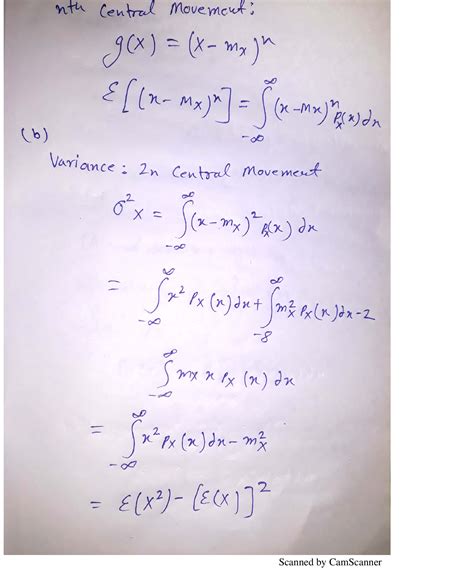 nth Central Movement:
g(x) = (x - mx)^n
ε[(x - mx)^n] = ∫_{-∞}^{∞} (x - mx)^n Px(x) dx
(b)
Variance: 2n Central Movement
σ²x = ∫_{-∞}^{∞} (x - mx)² Px(x) dx
= ∫_{-∞}^{∞} x² Px(x) dx + ∫_{-8}^{∞} m²x Px(x) dx - 2
∫_{-∞}^{∞} mx x Px(x) dx
= ∫_{-∞}^{∞} x² Px(x) dx - m²x
= ε(x²) - [ε(x)]²
Scanned by CamScanner